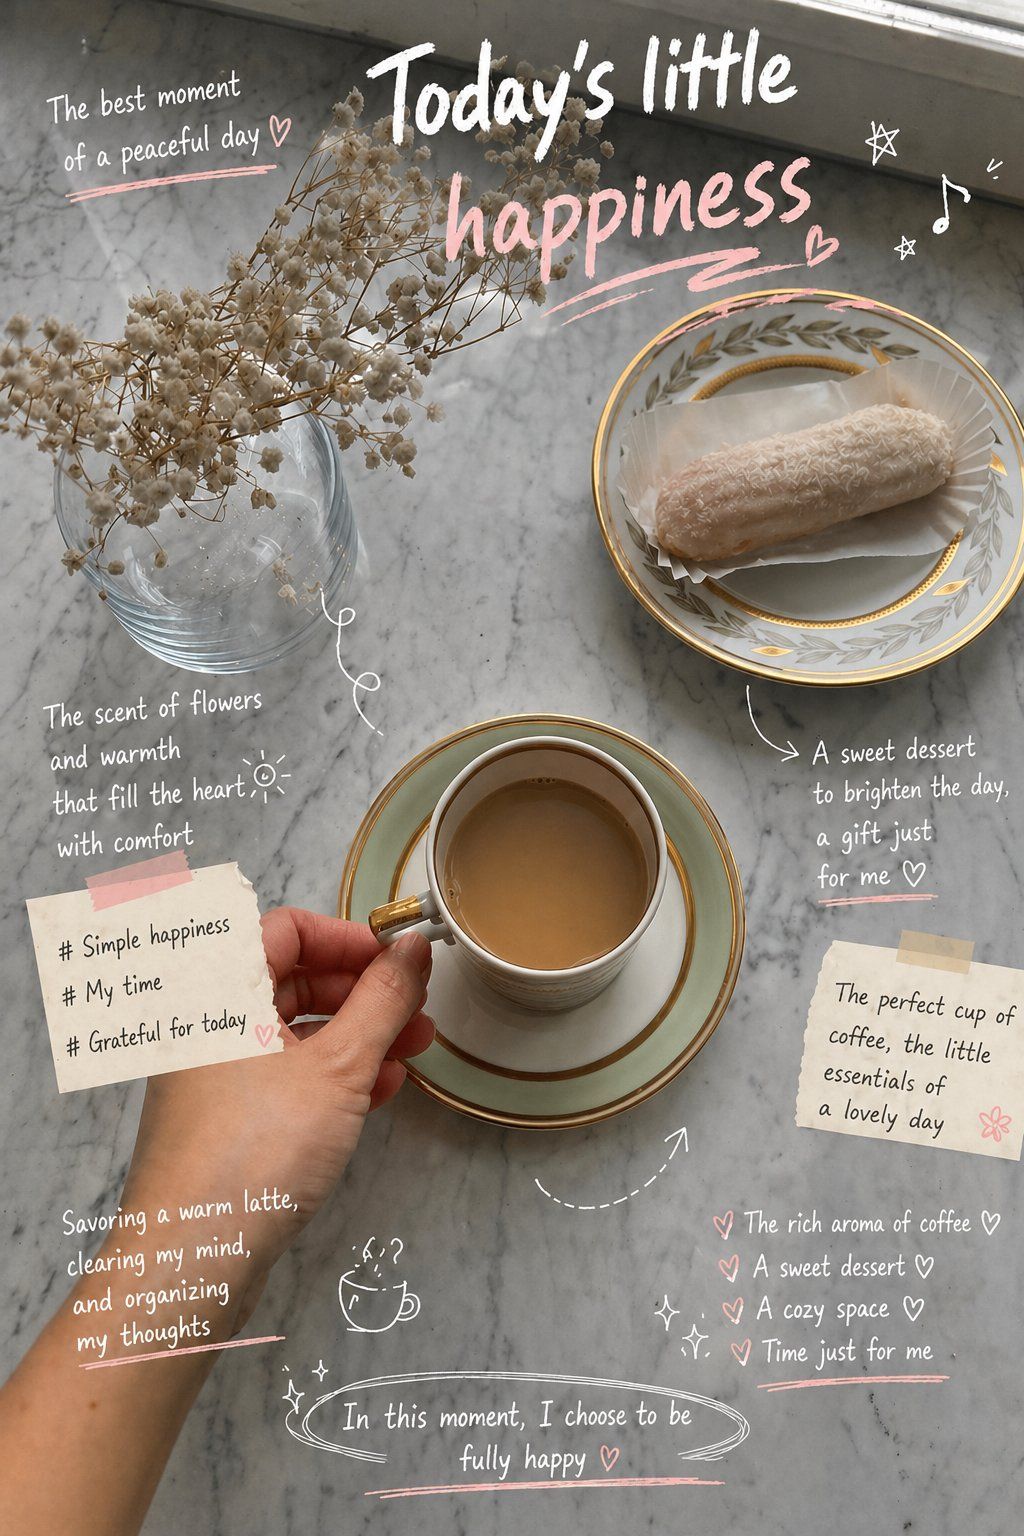 The best moment
of a peaceful day
Today's little
happiness
The scent of flowers
and warmth
that fill the heart
with comfort
A sweet dessert
to brighten the day,
a gift just
for me
# Simple happiness
# My time
# Grateful for today
The perfect cup of
coffee, the little
essentials of
a lovely day
Savoring a warm latte,
clearing my mind,
and organizing
my thoughts
The rich aroma of coffee
A sweet dessert
A cozy space
Time just for me
In this moment, I choose to be
fully happy